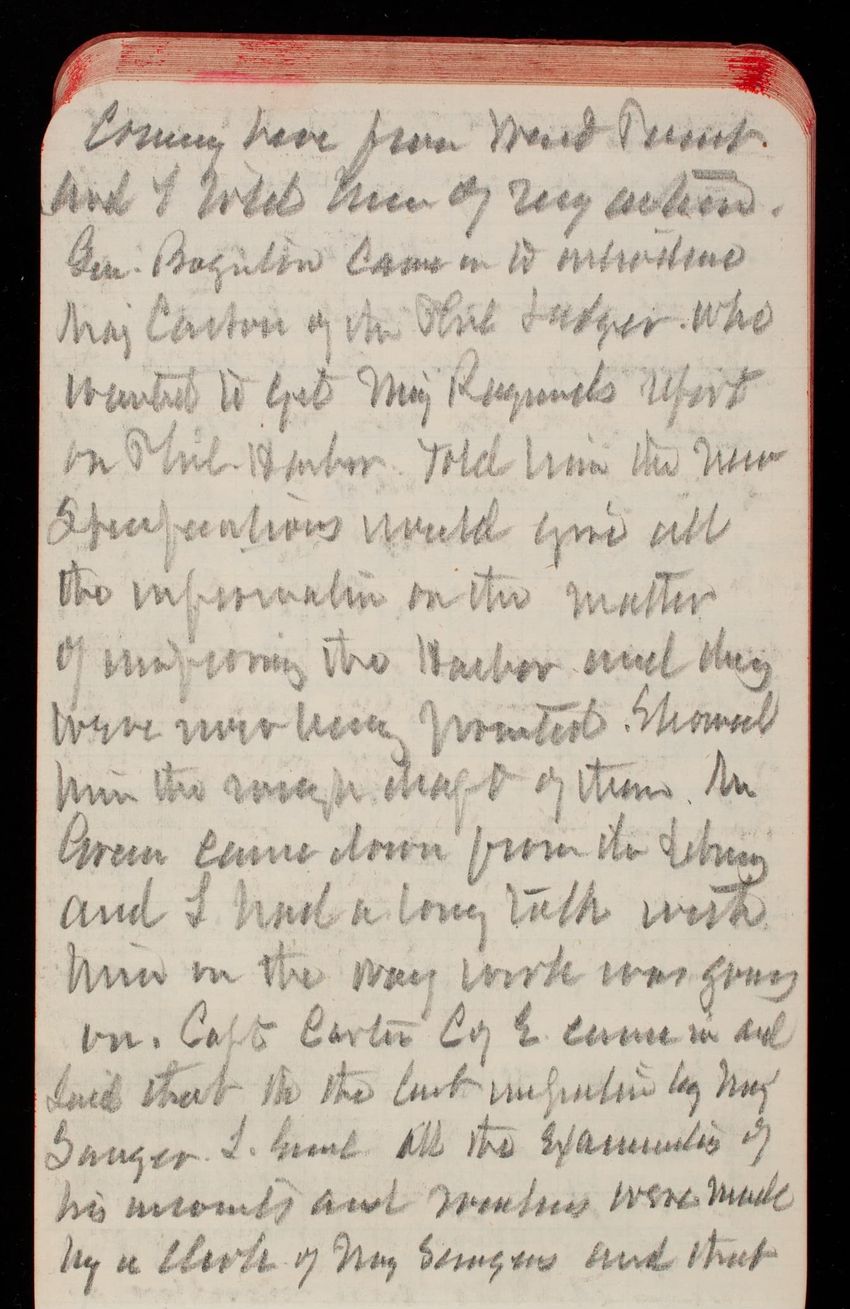 Coming here from West Point
and I told him of my action.
Gen. came in to introduce
Maj Carson of the Phil Ledger. who
wanted to get Maj Raymonds report
on Phil. Harbor. Told him the new
Specifications would give all
the information on the matter
of improving the Harbor and they
were now being printed. Showed
him the rough draft of them. Mr
Green came down from the Library
and I had a long talk with
him on the way work was going
on. Capt Carter C of E came in and
said that in the last inspection by Maj
Sanger I. Genl all the Examination of
his accounts and vouchers were made
by a Clerk of Maj Sangers and that